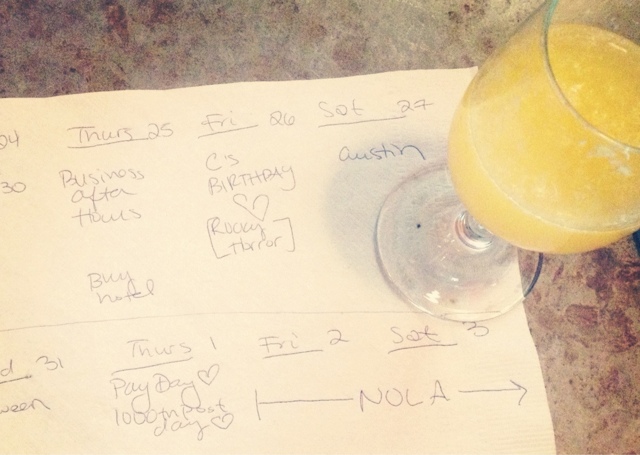 24 Thurs 25 Fri 26 Sat 27
30 Business after Hours
C's BIRTHDAY
[Rocky Horror]
austin
Buy hotel
d 31 Thurs 1 Fri 2 Sat 3
ween PayDay
1000th post day
NOLA